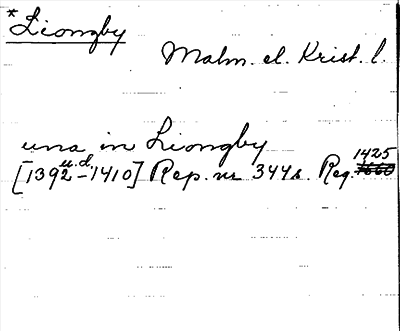 *Liongby
Malm. el. Krist. l.
una in Liongby
[1392 u.d. -1410] Rep. nr 3448. Reg. 1425